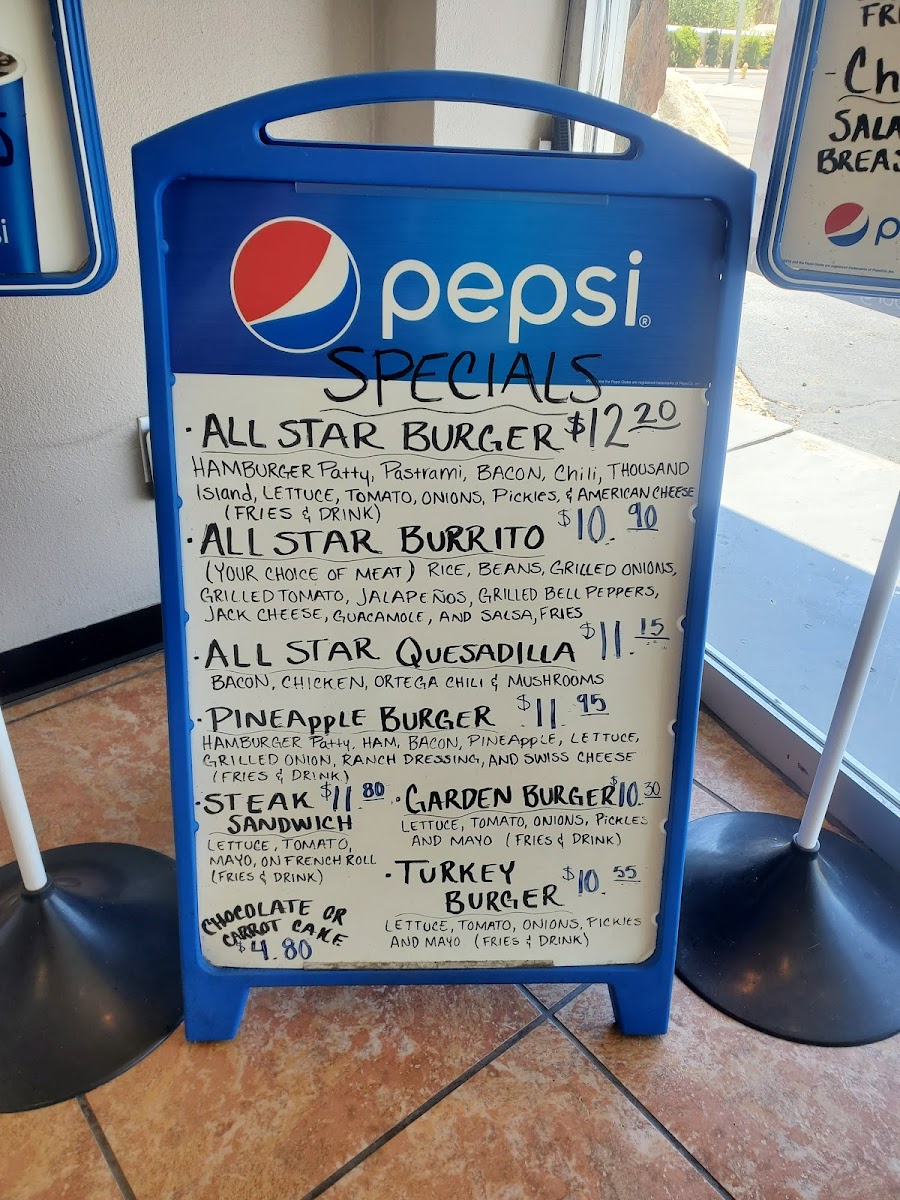 pepsi®
SPECIALS
· ALL STAR BURGER $12 20
HAMBURGER Patty, Pastrami, BACON, Chili, THOUSAND
Island, LETTUCE, TOMATO, ONIONS, Pickles, & AMERICAN CHEESE
(FRIES & DRINK)
· ALL STAR BURRITO $10. 90
(YOUR CHOICE OF MEAT) RICE, BEANS, GRILLED ONIONS,
GRILLED TOMATO, JALAPEÑOS, GRILLED BELL PEPPERS,
JACK CHEESE, GUACAMOLE, AND SALSA, FRIES
· ALL STAR QUESADILLA $11. 15
BACON, CHICKEN, ORTEGA CHILI & MUSHROOMS
· PINEAPPLE BURGER $11. 95
HAMBURGER Patty, HAM, BACON, PINEAPPLE, LETTUCE,
GRILLED ONION, RANCH DRESSING, AND SWISS CHEESE
(FRIES & DRINK)
· STEAK $11. 80
SANDWICH
LETTUCE, TOMATO,
MAYO, ON FRENCH ROLL
(FRIES & DRINK)
· GARDEN BURGER $10. 30
LETTUCE, TOMATO, ONIONS, PICKLES
AND MAYO (FRIES & DRINK)
· TURKEY
BURGER $10. 55
LETTUCE, TOMATO, ONIONS, PICKLES
AND MAYO (FRIES & DRINK)
CHOCOLATE OR
CARROT CAKE
$4.80
- Ch
SALA
BREAS